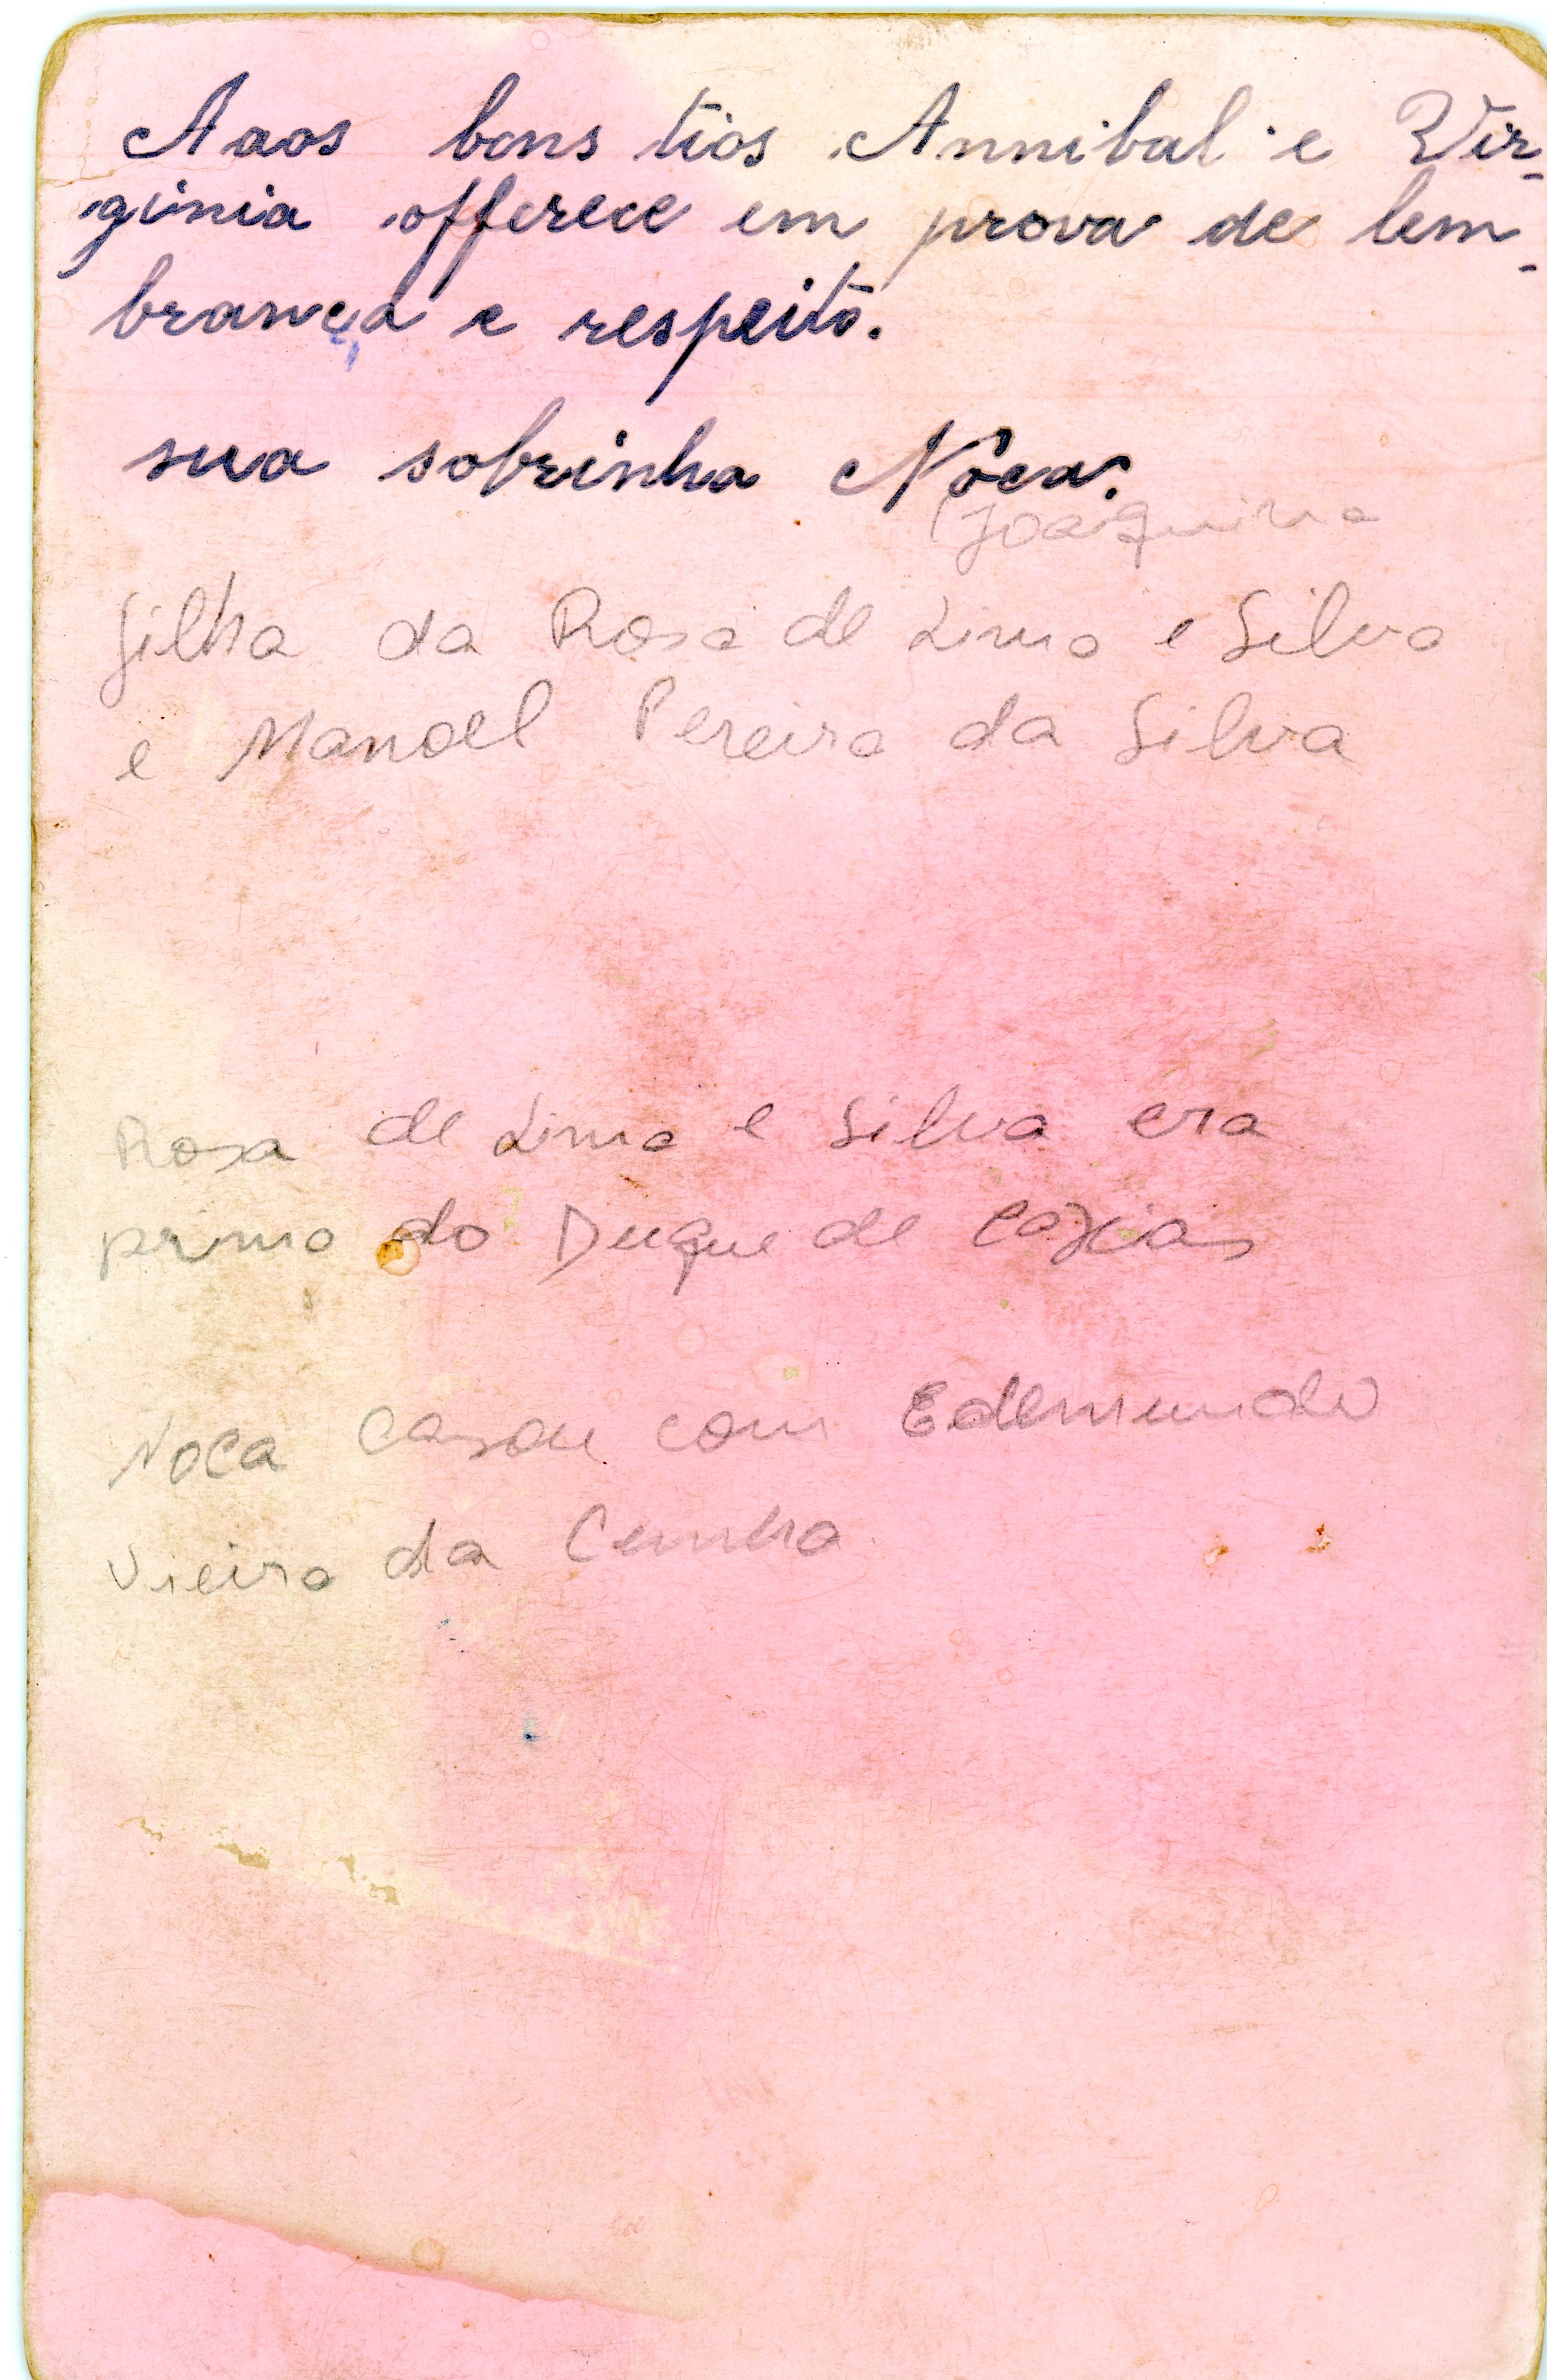 A aos bons tios Annibal e Vir-
ginia offerece em prova de lem-
brança e respeito.
sua sobrinha Nôca.
(Joaquina
filha da Rosa de Lima e Silva
e Manoel Pereira da Silva
Rosa de Lima e Silva era
prima do Duque de Caxias
Noca casou com Edemundo
Vieira da Cunha